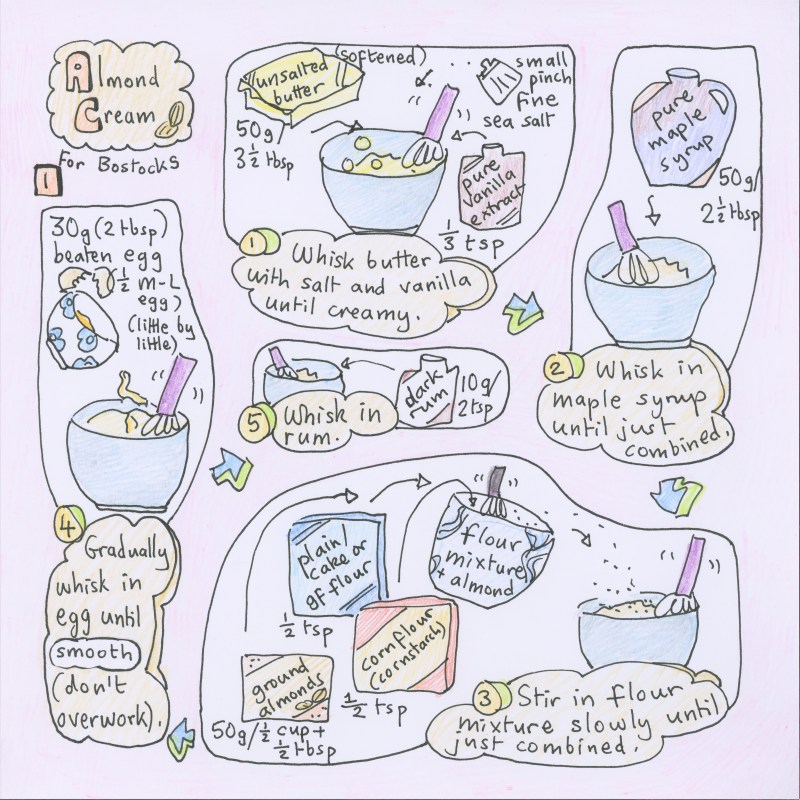 Almond
Cream
For Bostocks
1
unsalted
butter
(softened)
50g/
3 1/2 tbsp
small
pinch
fine
sea salt
pure
vanilla
extract
1/3 tsp
1 Whisk butter
with salt and vanilla
until creamy.
pure
maple
syrup
50g/
2 1/2 tbsp
2 Whisk in
maple syrup
until just
combined.
plain/
cake or
gf flour
1/2 tsp
cornflour
(cornstarch)
1/2 tsp
ground
almonds
50g/1/2 cup +
1/2 tbsp
flour
mixture
+ almond
3 Stir in flour
mixture slowly until
just combined.
30g (2 tbsp)
beaten egg
(1/2 m-L
egg)
(little by
little)
4
Gradually
whisk in
egg until
smooth
(don't
overwork).
dark
rum
10g/
2tsp
5 Whisk in
rum.